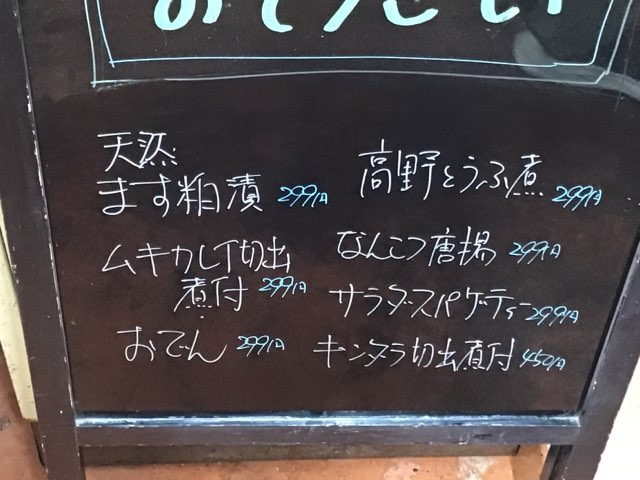 天然
ます粕漬 299円
ムキカレイ切出
煮付 299円
おでん 299円
高野とうふ煮 299円
なんこつ唐揚 299円
サラダスパゲティー 299円
キンダラ切出煮付 450円